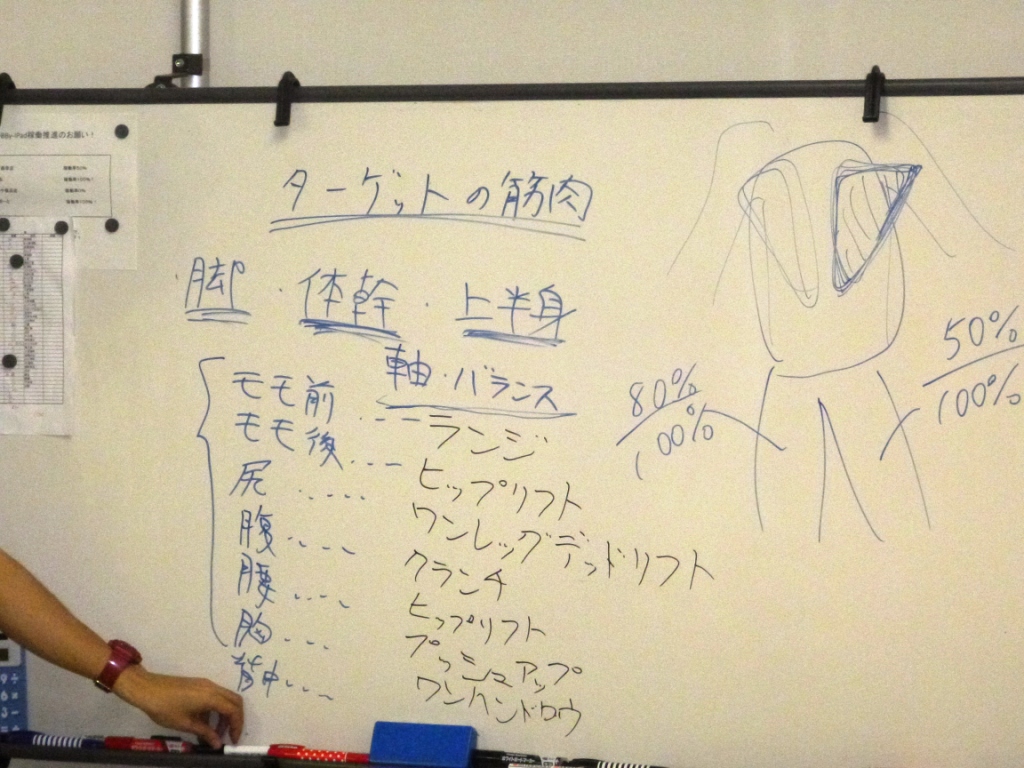 iPad稼働推進のお願い!
ターゲットの筋肉
脚・体幹・上半身
軸・バランス
モモ前 ---- ランジ
モモ後 .... ヒップリフト
尻 ..... ワンレッグデッドリフト
腹 .... クランチ
腰 .... ヒップリフト
胸 ... プッシュアップ
背中 ... ワンハンドロウ
80%
100%
50%
100%